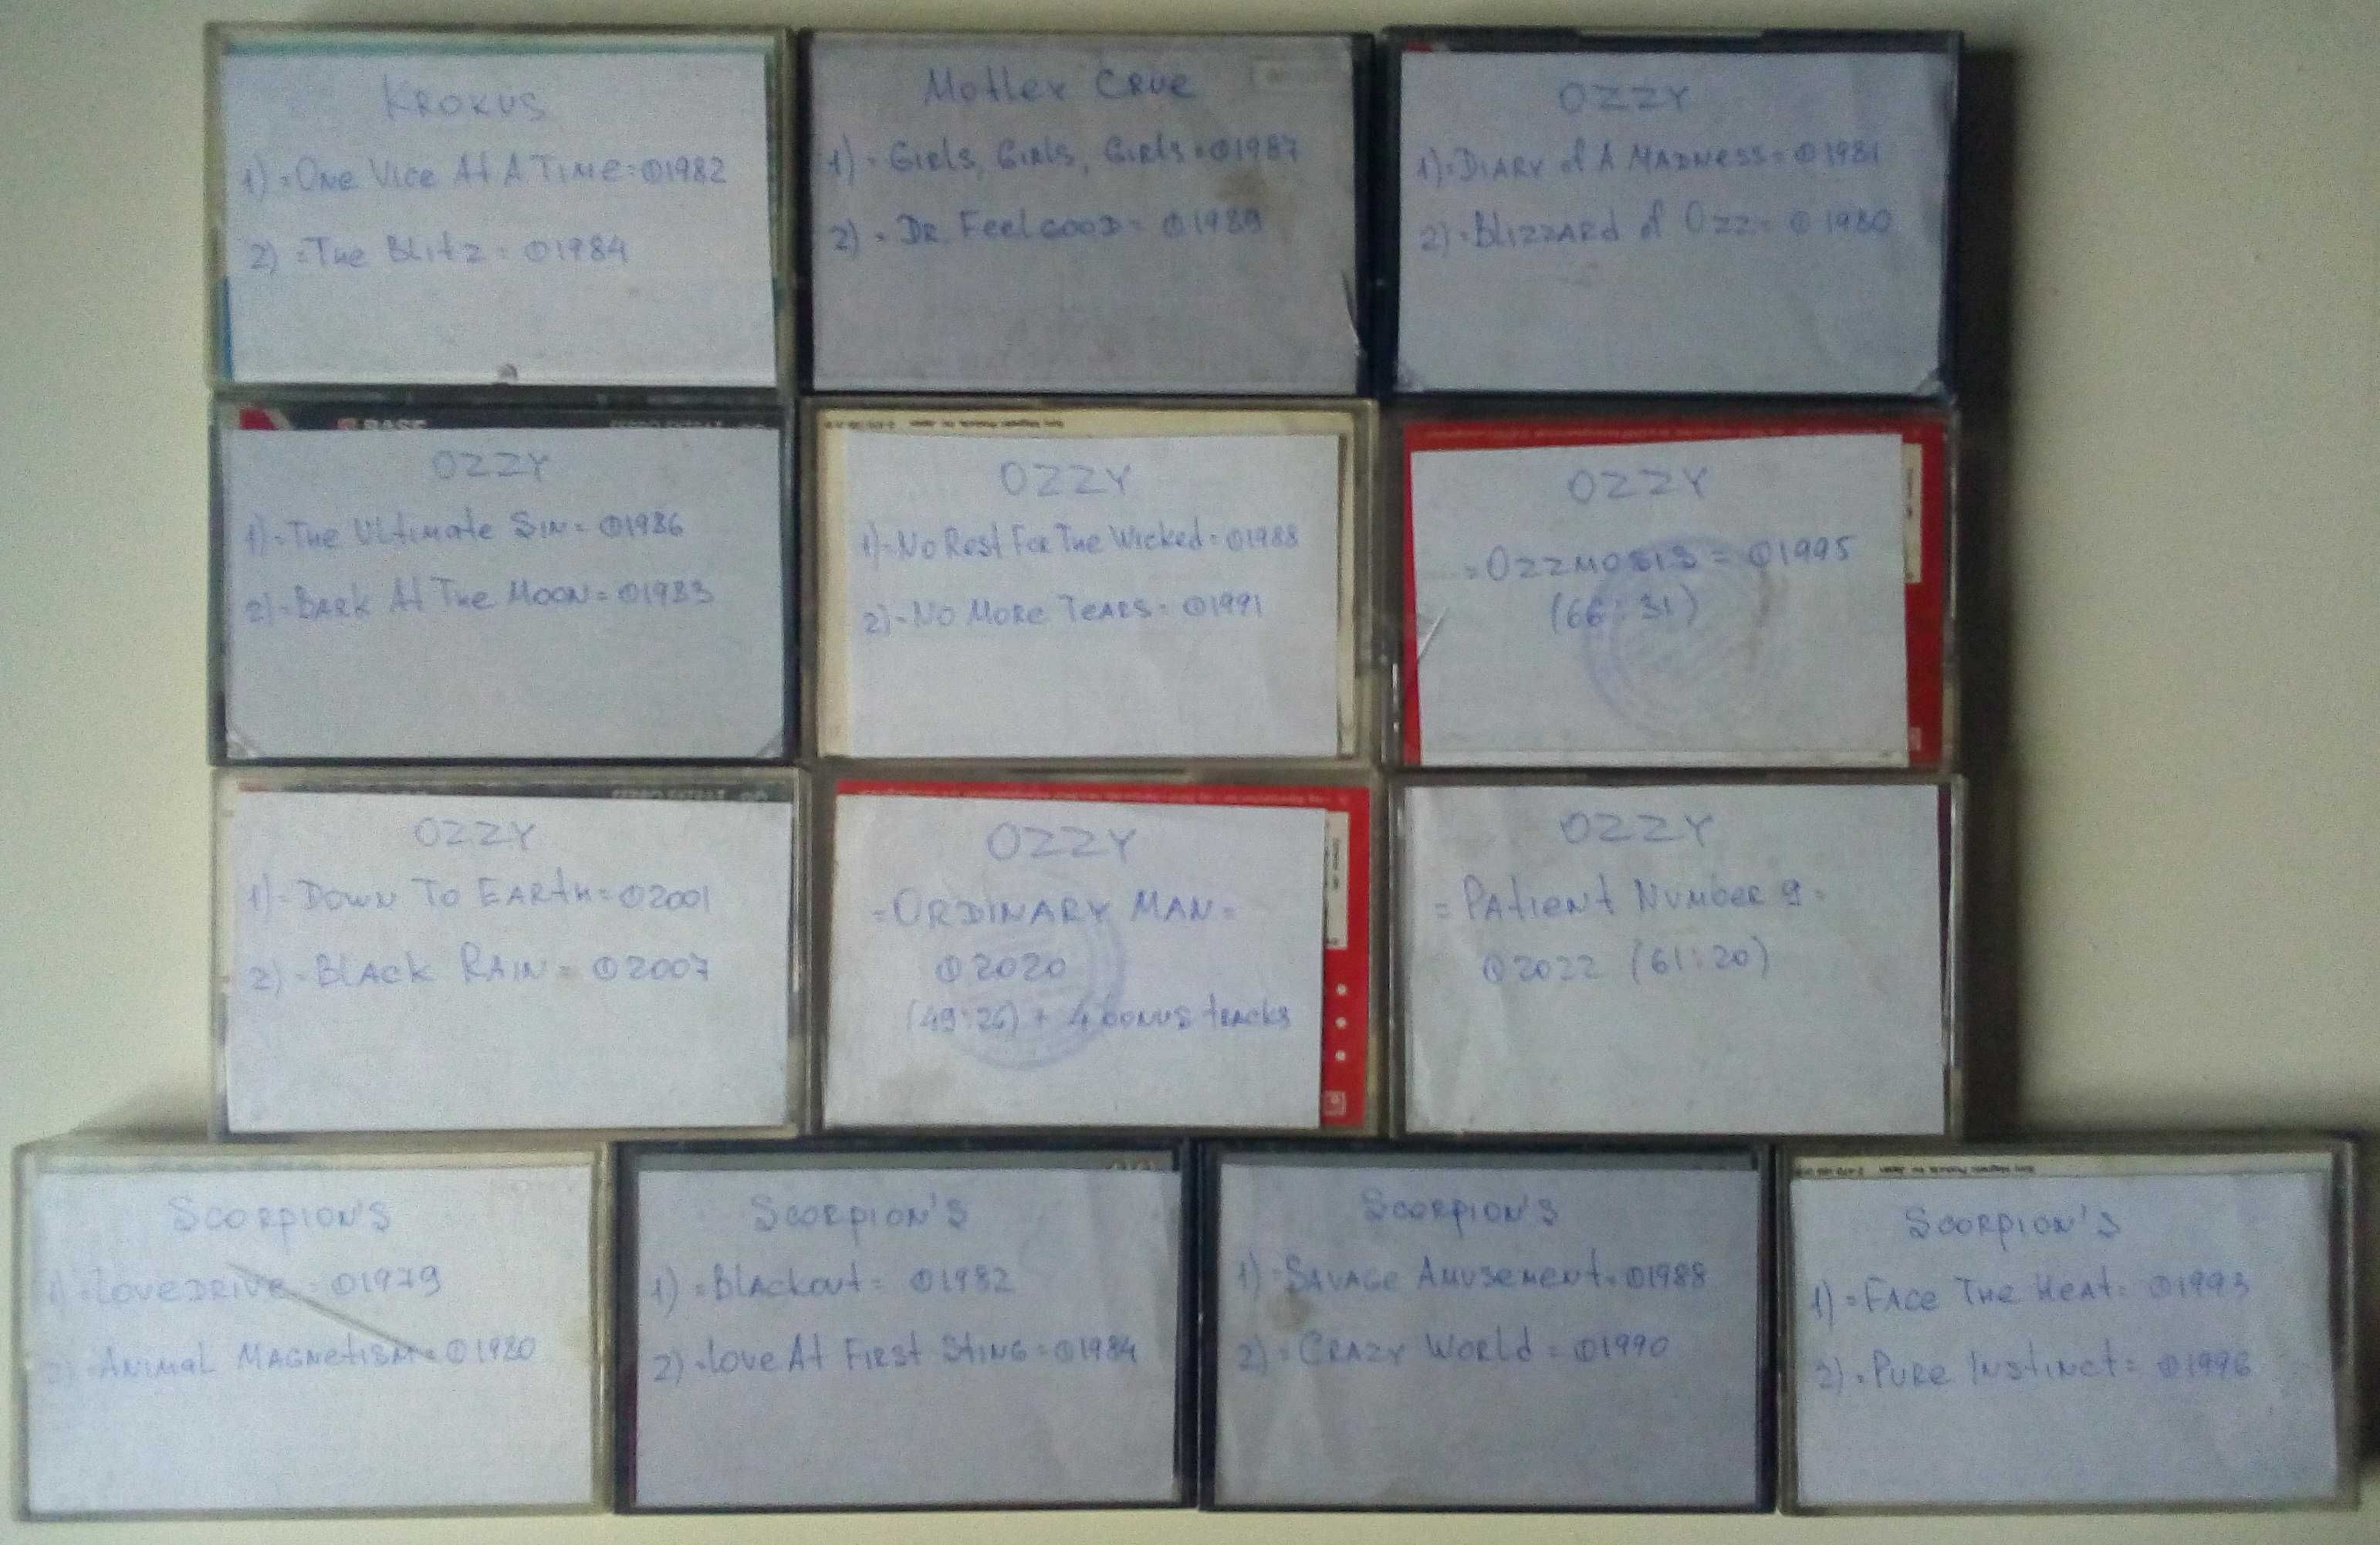 KROKUS
1)=ONE VICE At A TIME=℗1982
2)=THE BLITZ=℗1984
MOTLEY CRUE
1)=GIRLS, GIRLS, GIRLS=℗1987
2)=DR. FEELGOOD=℗1989
OZZY
1)=DIARY of A MADNESS=℗1981
2)=BLIZZARD of OZZ=℗1980
BASF
OZZY
1)=THE ULTIMATE SIN=℗1986
2)=BARK At THE MOON=℗1983
OZZY
1)=NO REST FOR THE WICKED=℗1988
2)=NO MORE TEARS=℗1991
OZZY
=OZZMOSIS=℗1995
(66:31)
OZZY
1)=DOWN TO EARTH=℗2001
2)=BLACK RAIN=℗2007
OZZY
=ORDINARY MAN=
℗2020
(49:26) + 4 bonus tracks
OZZY
=PATIENT NUMBER 9=
℗2022 (61:20)
SCORPION'S
1)=LOVEDRIVE=℗1979
2)=ANIMAL MAGNETISM=℗1980
SCORPION'S
1)=BLACKOUT=℗1982
2)=LOVE At FIRST STING=℗1984
SCORPION'S
1)=SAVAGE AMUSEMENT=℗1988
2)=CRAZY WORLD=℗1990
SCORPION'S
1)=FACE THE HEAT=℗1993
2)=PURE INSTINCT=℗1996